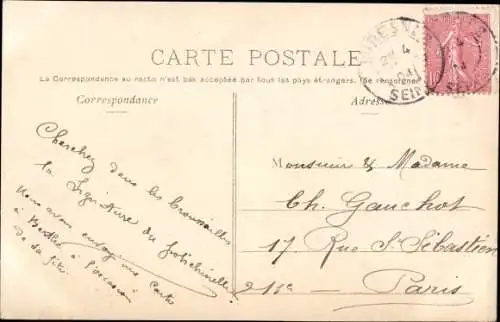 CARTE POSTALE
La Correspondance au recto n'est pas acceptée par tous les pays étrangers. (Se renseigner
Correspondance
Adresse
SEINE
04
Cherchez dans les broussailles
la signature du
Nous avons envoyé une carte
à à l'occasion
de sa fête
Monsieur & Madame
Ch. Gauchot
17 Rue St Sébastien
Paris